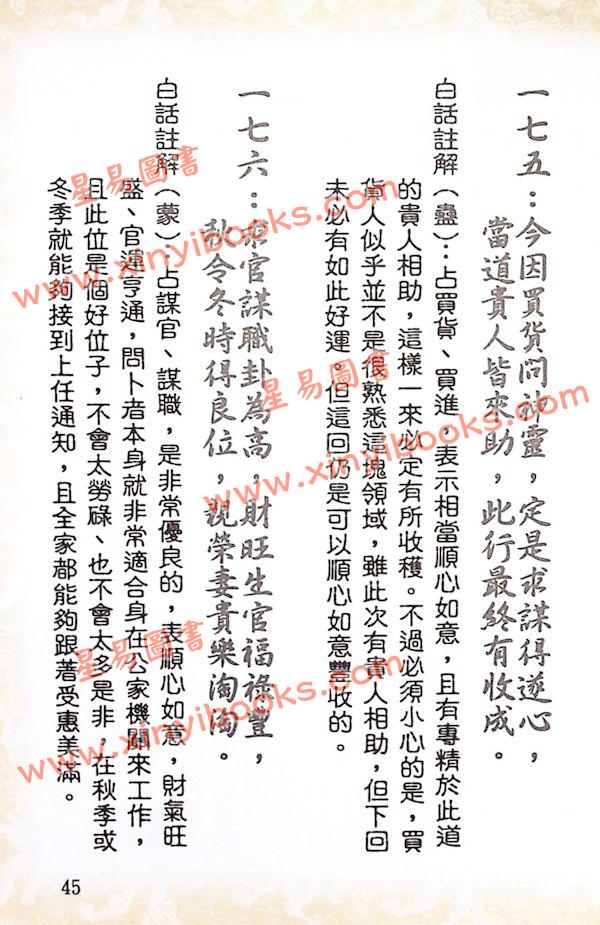 一七五：今因買貨問神靈，定是求謀得遂心，
當道貴人皆來助，此行最終有收成。
白話註解（蠱）：占買貨、買進，表示相當順心如意，且有專精於此道
的貴人相助，這樣一來必定有所收穫。不過必須小心的是，買
貨人似乎並不是很熟悉這塊領域，雖此次有貴人相助，但下回
未必有如此好運。但這回仍是可以順心如意豐收的。
一七六：求官謀職卦為高，財旺生官福祿豐，
秋令冬時得良位，親榮妻貴樂淘淘。
白話註解（蒙）：占謀官、謀職，是非常優良的，表順心如意，財氣旺
盛、官運亨通，問卜者本身就非常適合身在公家機關來工作，
且此位是個好位子，不會太勞碌、也不會太多是非，在秋季或
冬季就能夠接到上任通知，且全家都能夠跟著受惠美滿。
45
星易圖書
www.xinyibooks.com
星易圖書
www.xinyibooks.com
星易圖書
www.xinyibooks.com